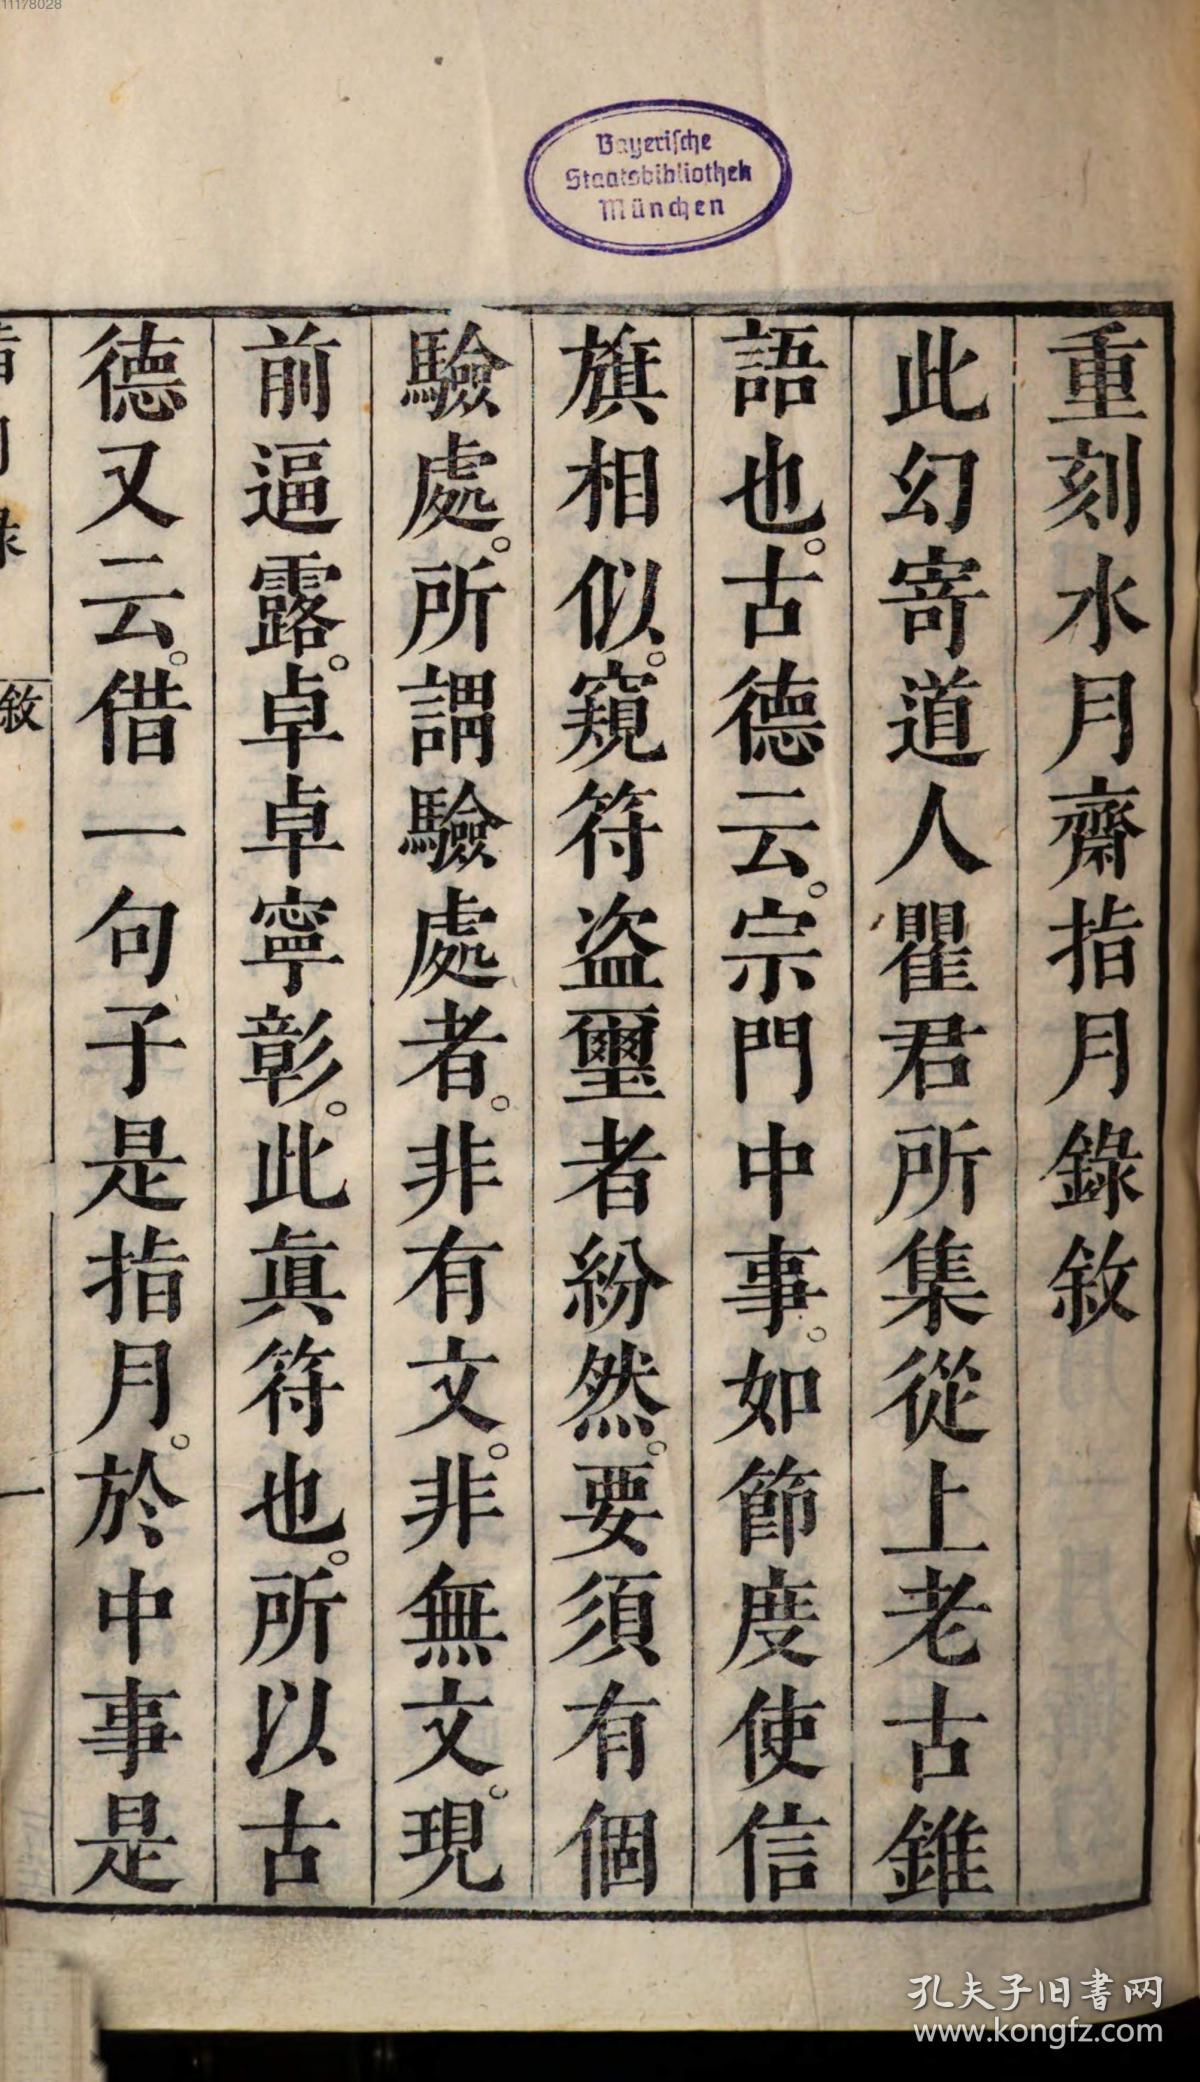 11178028
Bayerische
Staatsbibliothek
München
重刻水月齋指月錄敘
此幻寄道人瞿君所集從上老古錐
語也。古德云。宗門中事。如節度使信
旗相似。窺符盜璽者紛然。要須有個
驗處。所謂驗處者。非有文。非無文。現
前逼露。卓卓寧彰。此眞符也。所以古
德又云。借一句子是指月。於中事是
敘
一
孔夫子旧书网
www.kongfz.com